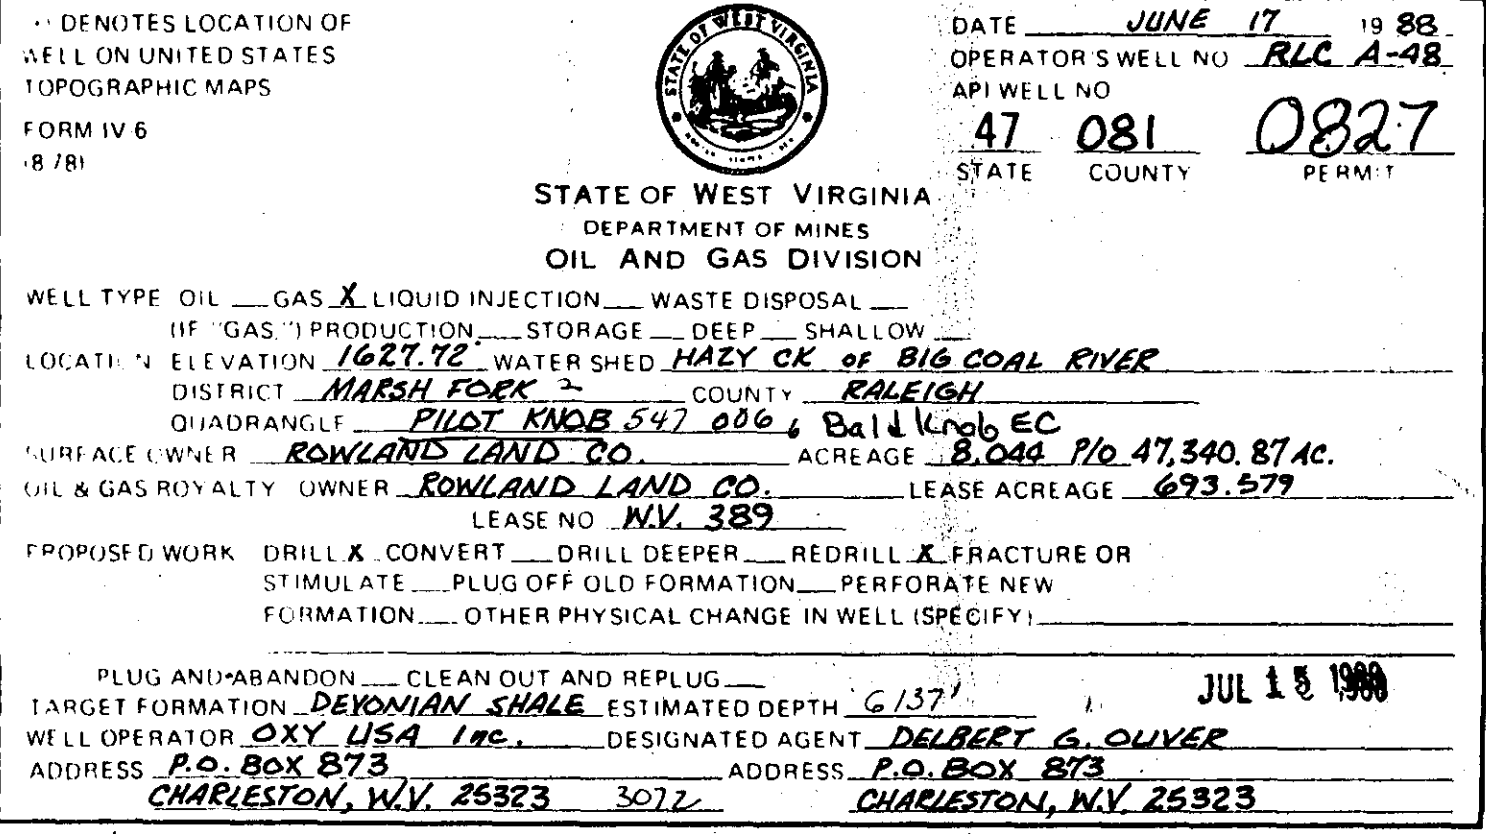 DENOTES LOCATION OF
WELL ON UNITED STATES
TOPOGRAPHIC MAPS
FORM IV-6
(8/78)
STATE OF WEST VIRGINIA
STATE OF WEST VIRGINIA
DEPARTMENT OF MINES
OIL AND GAS DIVISION
DATE JUNE 17 19 88
OPERATOR'S WELL NO RLC A-48
API WELL NO
47 081 0827
STATE COUNTY PERMIT
WELL TYPE OIL ___ GAS X LIQUID INJECTION ___ WASTE DISPOSAL ___
(IF "GAS,") PRODUCTION ___ STORAGE ___ DEEP ___ SHALLOW ___
LOCATION ELEVATION 1627.72' WATER SHED HAZY CK OF BIG COAL RIVER
DISTRICT MARSH FORK 2 COUNTY RALEIGH
QUADRANGLE PILOT KNOB 547 006 6 Bald Knob EC
SURFACE OWNER ROWLAND LAND CO. ACREAGE 8,044 P/O 47,340.87 AC.
OIL & GAS ROYALTY OWNER ROWLAND LAND CO. LEASE ACREAGE 693.579
LEASE NO W.V. 389
PROPOSED WORK DRILL X CONVERT ___ DRILL DEEPER ___ REDRILL X FRACTURE OR
STIMULATE ___ PLUG OFF OLD FORMATION ___ PERFORATE NEW
FORMATION ___ OTHER PHYSICAL CHANGE IN WELL (SPECIFY) ___
PLUG AND ABANDON ___ CLEAN OUT AND REPLUG ___
JUL 15
TARGET FORMATION DEVONIAN SHALE ESTIMATED DEPTH 6137'
WELL OPERATOR OXY USA Inc. DESIGNATED AGENT DELBERT G. OLIVER
ADDRESS P.O. BOX 873 ADDRESS P.O. BOX 873
CHARLESTON, W.V. 25323 3072 CHARLESTON, W.V. 25323